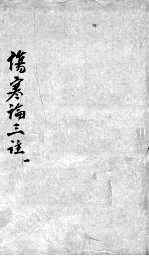 傷寒論三註
一